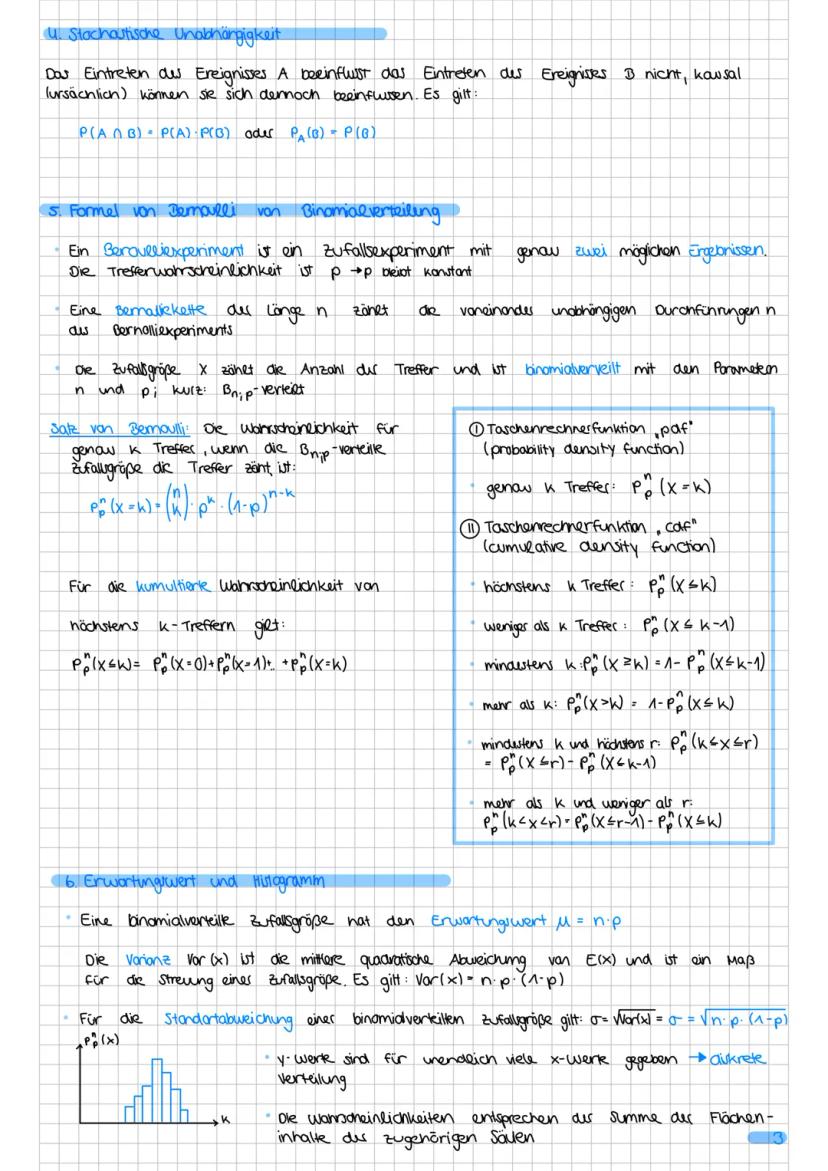 4. Stochastische Unabhängigkeit
Das Eintreten des Ereignisses A beeinflusst das Eintreten des Ereignisses B nicht, kausal
(ursächlich) können sie sich dennoch beeinflussen. Es gilt:
P(A ∩ B) = P(A) · P(B) oder P_A(B) = P(B)
5. Formel von Bernoulli von Binomialverteilung
• Ein Beroulliexperiment ist ein Zufallsexperiment mit genau zwei möglichen Ergebnissen.
Die Trefferwahrscheinlichkeit ist p → p bleibt konstant
• Eine Bernoullikette der Länge n zählt die voneinander unabhängigen Durchführungen n
des Bernolliexperiments
• Die Zufallsgröße X zählt die Anzahl der Treffer und ist binomialverveilt mit den Parametern
n und p; kurz: B_{n;p}-verteilt
Satz von Bernoulli: Die Wahrscheinlichkeit für
genau k Treffer, wenn die B_{n;p}-verteilte
Zufallsgröße die Treffer zählt, ist:
P_p^n (X = k) = (n k) · p^k · (1-p)^{n-k}
Für die kumultierte Wahrscheinlichkeit von
höchstens k-Treffern gilt:
P_p^n(X ≤ k) = P_p^n(X = 0) + P_p^n(X = 1) + .. + P_p^n(X = k)
I Taschenrechnerfunktion „pdf"
(probability density function)
• genau k Treffer: P_p^n (X = k)
II Taschenrechnerfunktion „cdf"
(cumulative density function)
• höchstens k Treffer: P_p^n (X ≤ k)
• weniger als k Treffer: P_p^n (X ≤ k-1)
• mindestens k: P_p^n (X ≥ k) = 1 - P_p^n (X ≤ k-1)
• mehr als k: P_p^n (X > k) = 1 - P_p^n (X ≤ k)
• mindestens k und höchstens r: P_p^n (k ≤ X ≤ r)
= P_p^n (X ≤ r) - P_p^n (X ≤ k-1)
• mehr als k und weniger als r:
P_p^n (k < X < r) = P_p^n (X ≤ r-1) - P_p^n (X ≤ k)
6. Erwartungswert und Histogramm
• Eine binomialverteilte Zufallsgröße hat den Erwartungswert μ = n·p
Die Varianz Var(x) ist die mittlere quadratische Abweichung von E(X) und ist ein Maß
für die Streuung einer Zufallsgröße. Es gilt: Var(x) = n · p · (1-p)
• Für die Standartabweichung einer binomialverteilten Zufallsgröße gilt: σ = √Var(x) = σ = √n · p · (1-p)
P_p^n (x)
k
• y-Werte sind für unendlich viele x-Werte gegeben → diskrete
Verteilung
• Die Wahrscheinlichkeiten entsprechen der Summe der Flächen-
inhalte der zugehörigen Säulen
3